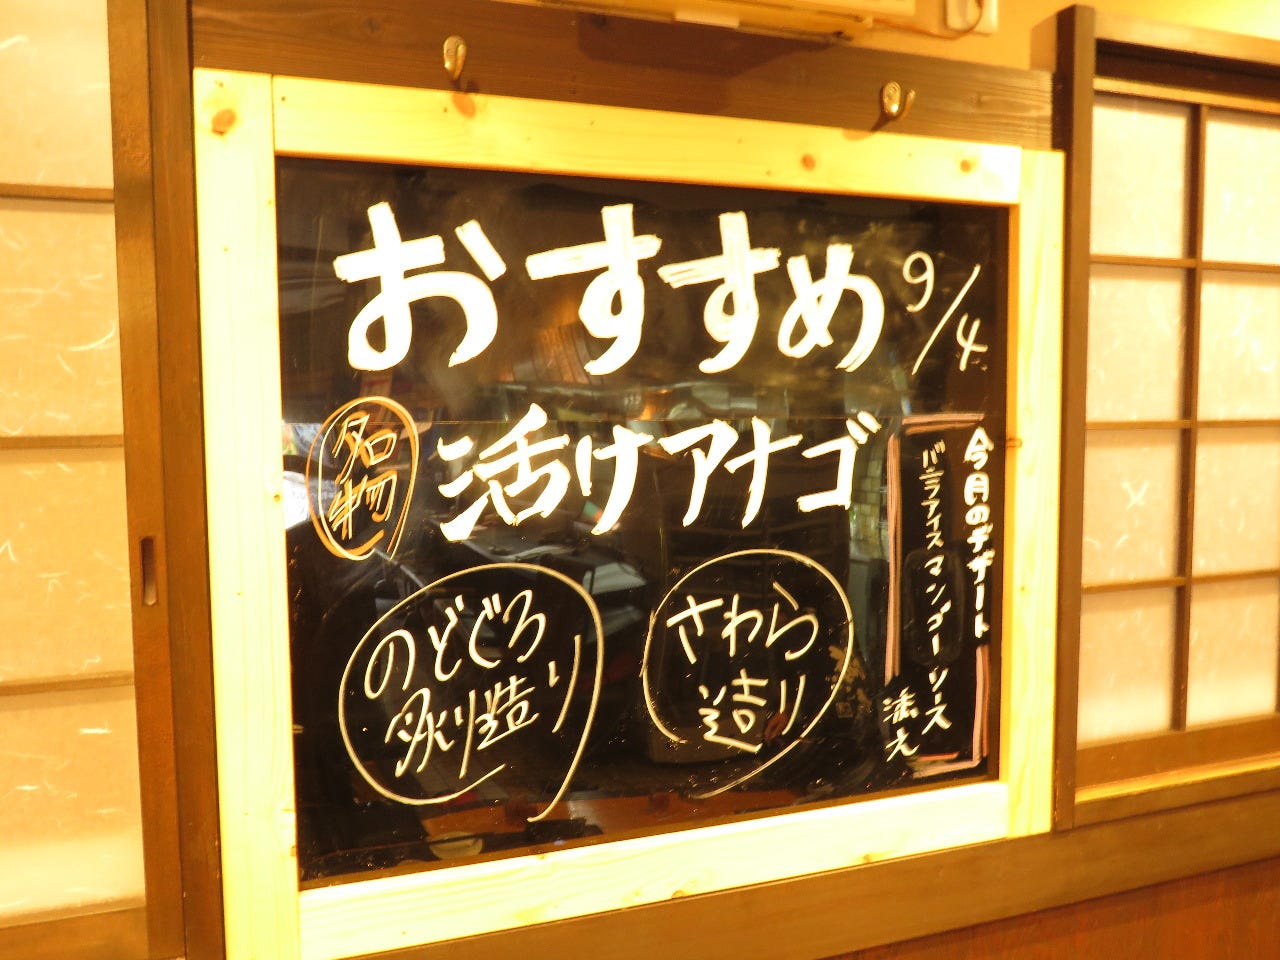 おすすめ
9/4
名物
活けアナゴ
のどぐろ
炙り造り
さわら
造り
今月のデザート
バニラアイスマンゴーソース
添え